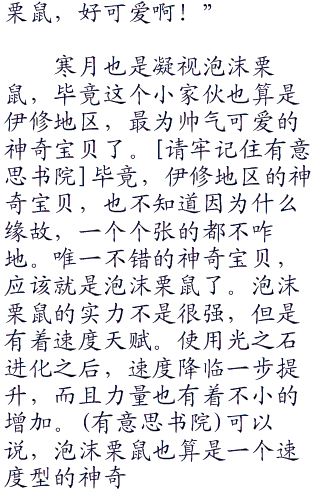 栗鼠，好可爱啊！”
寒月也是凝视泡沫栗
鼠，毕竟这个小家伙也算是
伊修地区，最为帅气可爱的
神奇宝贝了。[请牢记住有意
思书院]毕竟，伊修地区的神
奇宝贝，也不知道因为什么
缘故，一个个张的都不咋
地。唯一不错的神奇宝贝，
应该就是泡沫栗鼠了。泡沫
栗鼠的实力不是很强，但是
有着速度天赋。使用光之石
进化之后，速度降临一步提
升，而且力量也有着不小的
增加。(有意思书院)可以
说，泡沫栗鼠也算是一个速
度型的神奇